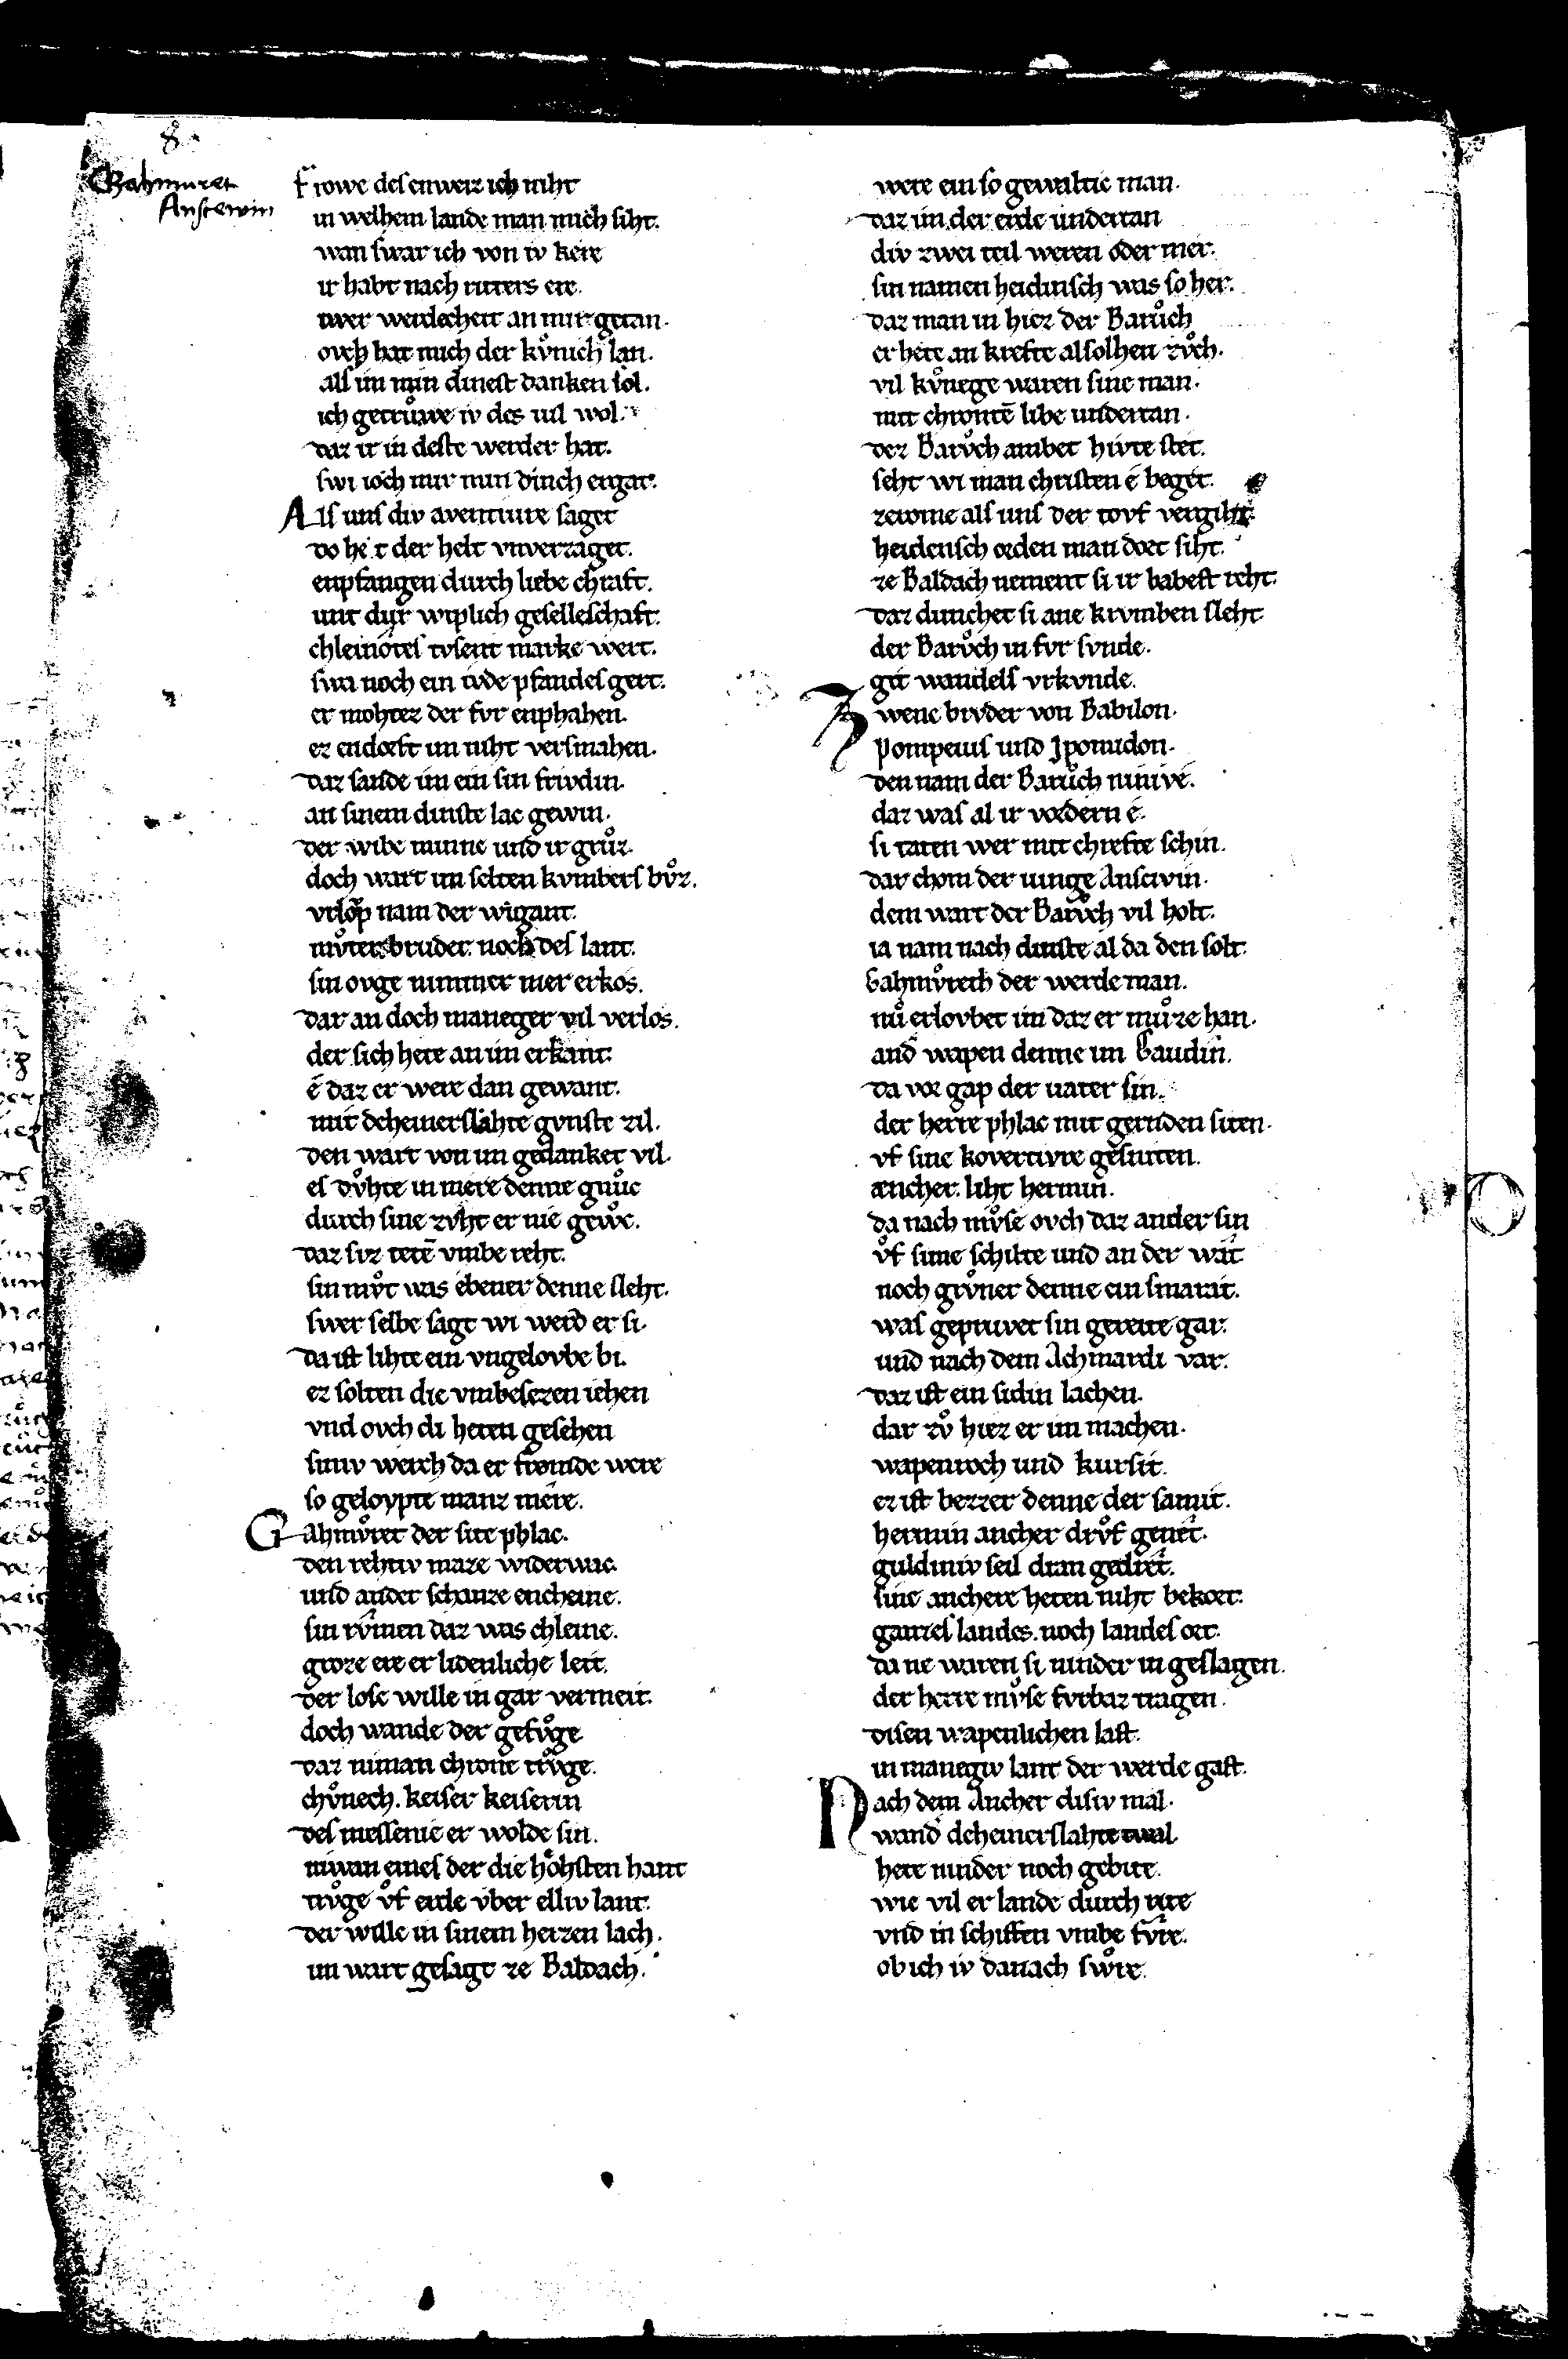 8.
Gahmuret
Anscewin
Frowe des enweiz ich niht
in welhem lande man mich siht.
wan swar ich von iv kere
ir habt nach ritters ere.
iwer werdecheit an mir getan.
ovch hat mich der kvͦnich lan.
als im min dinest danken sol.
ich getrůwe iv des uil wol.
daz ir in deste werder hat.
swi ioch mir min dinch ergat.
Als uns div aventiure saget
do het der helt vnverzaget.
enpfangen durch liebe chraft.
unt dur wiplich geselleschaft.
chleinotes tvsent marke wert.
swa noch ein ivde pfandes gert.
er mohtez der fvr enphahen.
ez endorft im niht versmahen.
daz sande im ein sin frivdin.
an sinem dinste lac gewin.
der wibe minne und ir grůz.
doch wart im selten kvmbers bvͦz.
vrlop nam der wigant.
mvͦter. bruder. noch des lant.
sin ovge nimmer mer erkos.
dar an doch maneger vil verlos.
der sich hete an im erkant.
é daz er were dan gewant.
mit deheinerslahte gvnste zil.
den wart von im gedanket vil.
es dvͦhte in mere denne gnůc
durch sine zvht er nie gewͦc.
daz siz tetē vmbe reht.
sin mvͦt was ebener denne sleht.
swer selbe sagt wi werd er si.
da ist lihte ein vngelovbe bi.
ez solten die vmbesezen iehen
vnd ovch di heten gesehen
siniv werch da er fromde were
so geloypte manz mere.
Gahmvͦret der site phlac.
den rehtiv maze widerwac.
und ander schanze encheine.
sin rvͤmen daz was chleine.
groze ere er lidenliche leit.
der lose wille in gar vermeit.
doch wande der gefvͦge
daz niman chrone trvͦge.
chvͦnech. keiser keiserin
des messenie er wolde sin.
niwan eines der die hohsten hant
trvͦge vͦf erde vber elliv lant.
der wille in sinem herzen lach.
im wart gesagt ze Baldach.
were ein so gewaltic man.
daz im der erde undertan
div zwei teil weren oder mer.
sin namen heidinsch was so her.
daz man in hiez der Barůch
er hete an krefte alsolhen zvͦch.
vil kvͦnege waren sine man.
mit chrontē libe undertan.
dez Barvͦch ambet hivte stet.
seht wi man christen é beget.
zerome als uns der tovf vergiht.
heidensch orden man dort siht.
ze Baldach nement si ir babest reht.
daz dunchet si ane krvmben sleht
der Barvͦch in fvr svnde.
git wandels vrkvnde.
Zwene brvder von Babilon.
Pompeius und Jpomidon.
den nam der Barůch ninivé.
daz was al ir vordern é.
si taten wer mit chrefte schin.
dar chom der iunge Anscivin.
dem wart der Barvͦch vil holt.
ia nam nach dinste al da den solt.
Gahmvͦreth der werde man.
nů erlovbet im daz er můze han.
and̓ wapen denne im Gaudin̄.
da vor gap der uater sin.
der herre phlac mit gernden siten.
vf sine kovertivre gesniten.
ancher. liht hermin̄.
da nach mvͦse ovch daz ander sin
vͦf sime schilte und an der wat
noch grvͦner denne ein smarat.
was gepruvet sin gereite gar.
und nach dem Achmardi var.
daz ist ein sidin lachen.
dar zvͦ hiez er im machen.
wapenroch und kursit.
ez ist bezzer denne der samit.
hermin ancher drvͦf genet.
guldiniv seil dran gedret.
sine anchere heten niht bekort.
ganzes landes. noch landes ort.
da ne waren si ninder in geslagen.
der herre mvͦse fvrbaz tragen.
disen wapenlichen last.
in manegiv lant der werde gast.
Nach dem Ancher disiv mal.
wand̓ deheinerslahte twal
hete ninder noch gebite.
wie vil er lande durch rite
vnd in schiffen vmbe fvͤre.
ob ich iv danach swͦre.